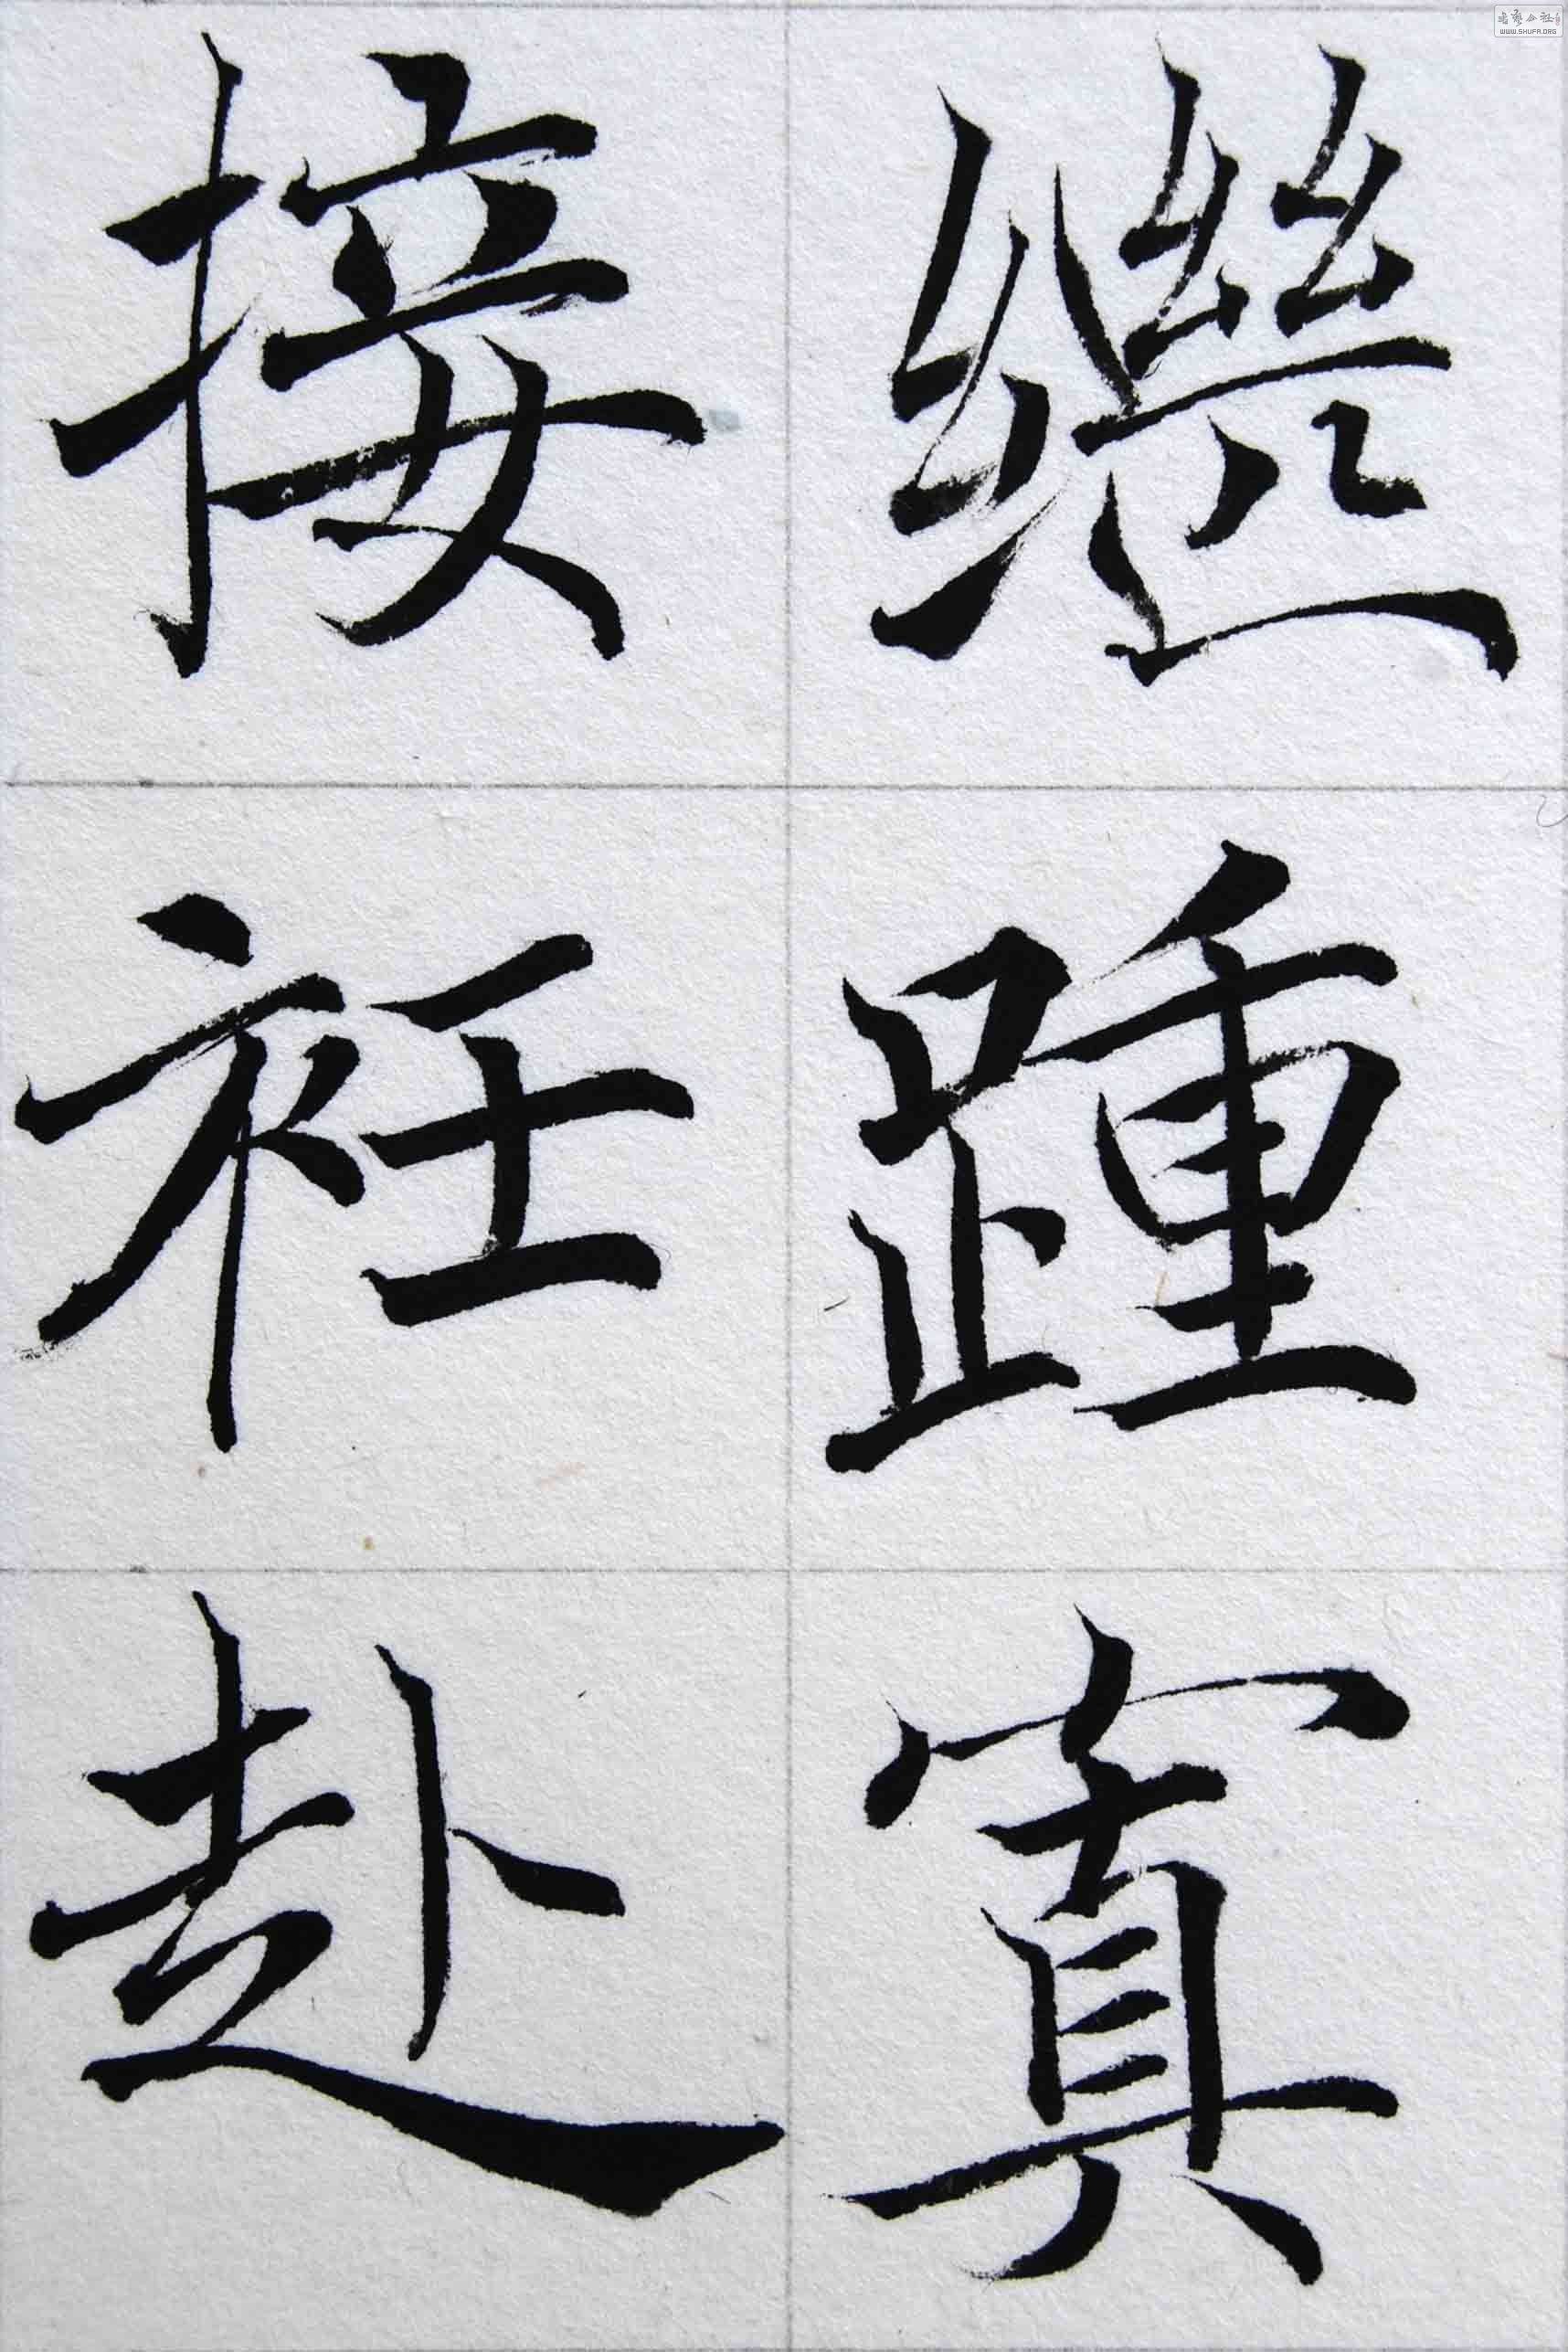 繼踵寘
接衽赴
書藝公社
WWW.SHUFA.ORG